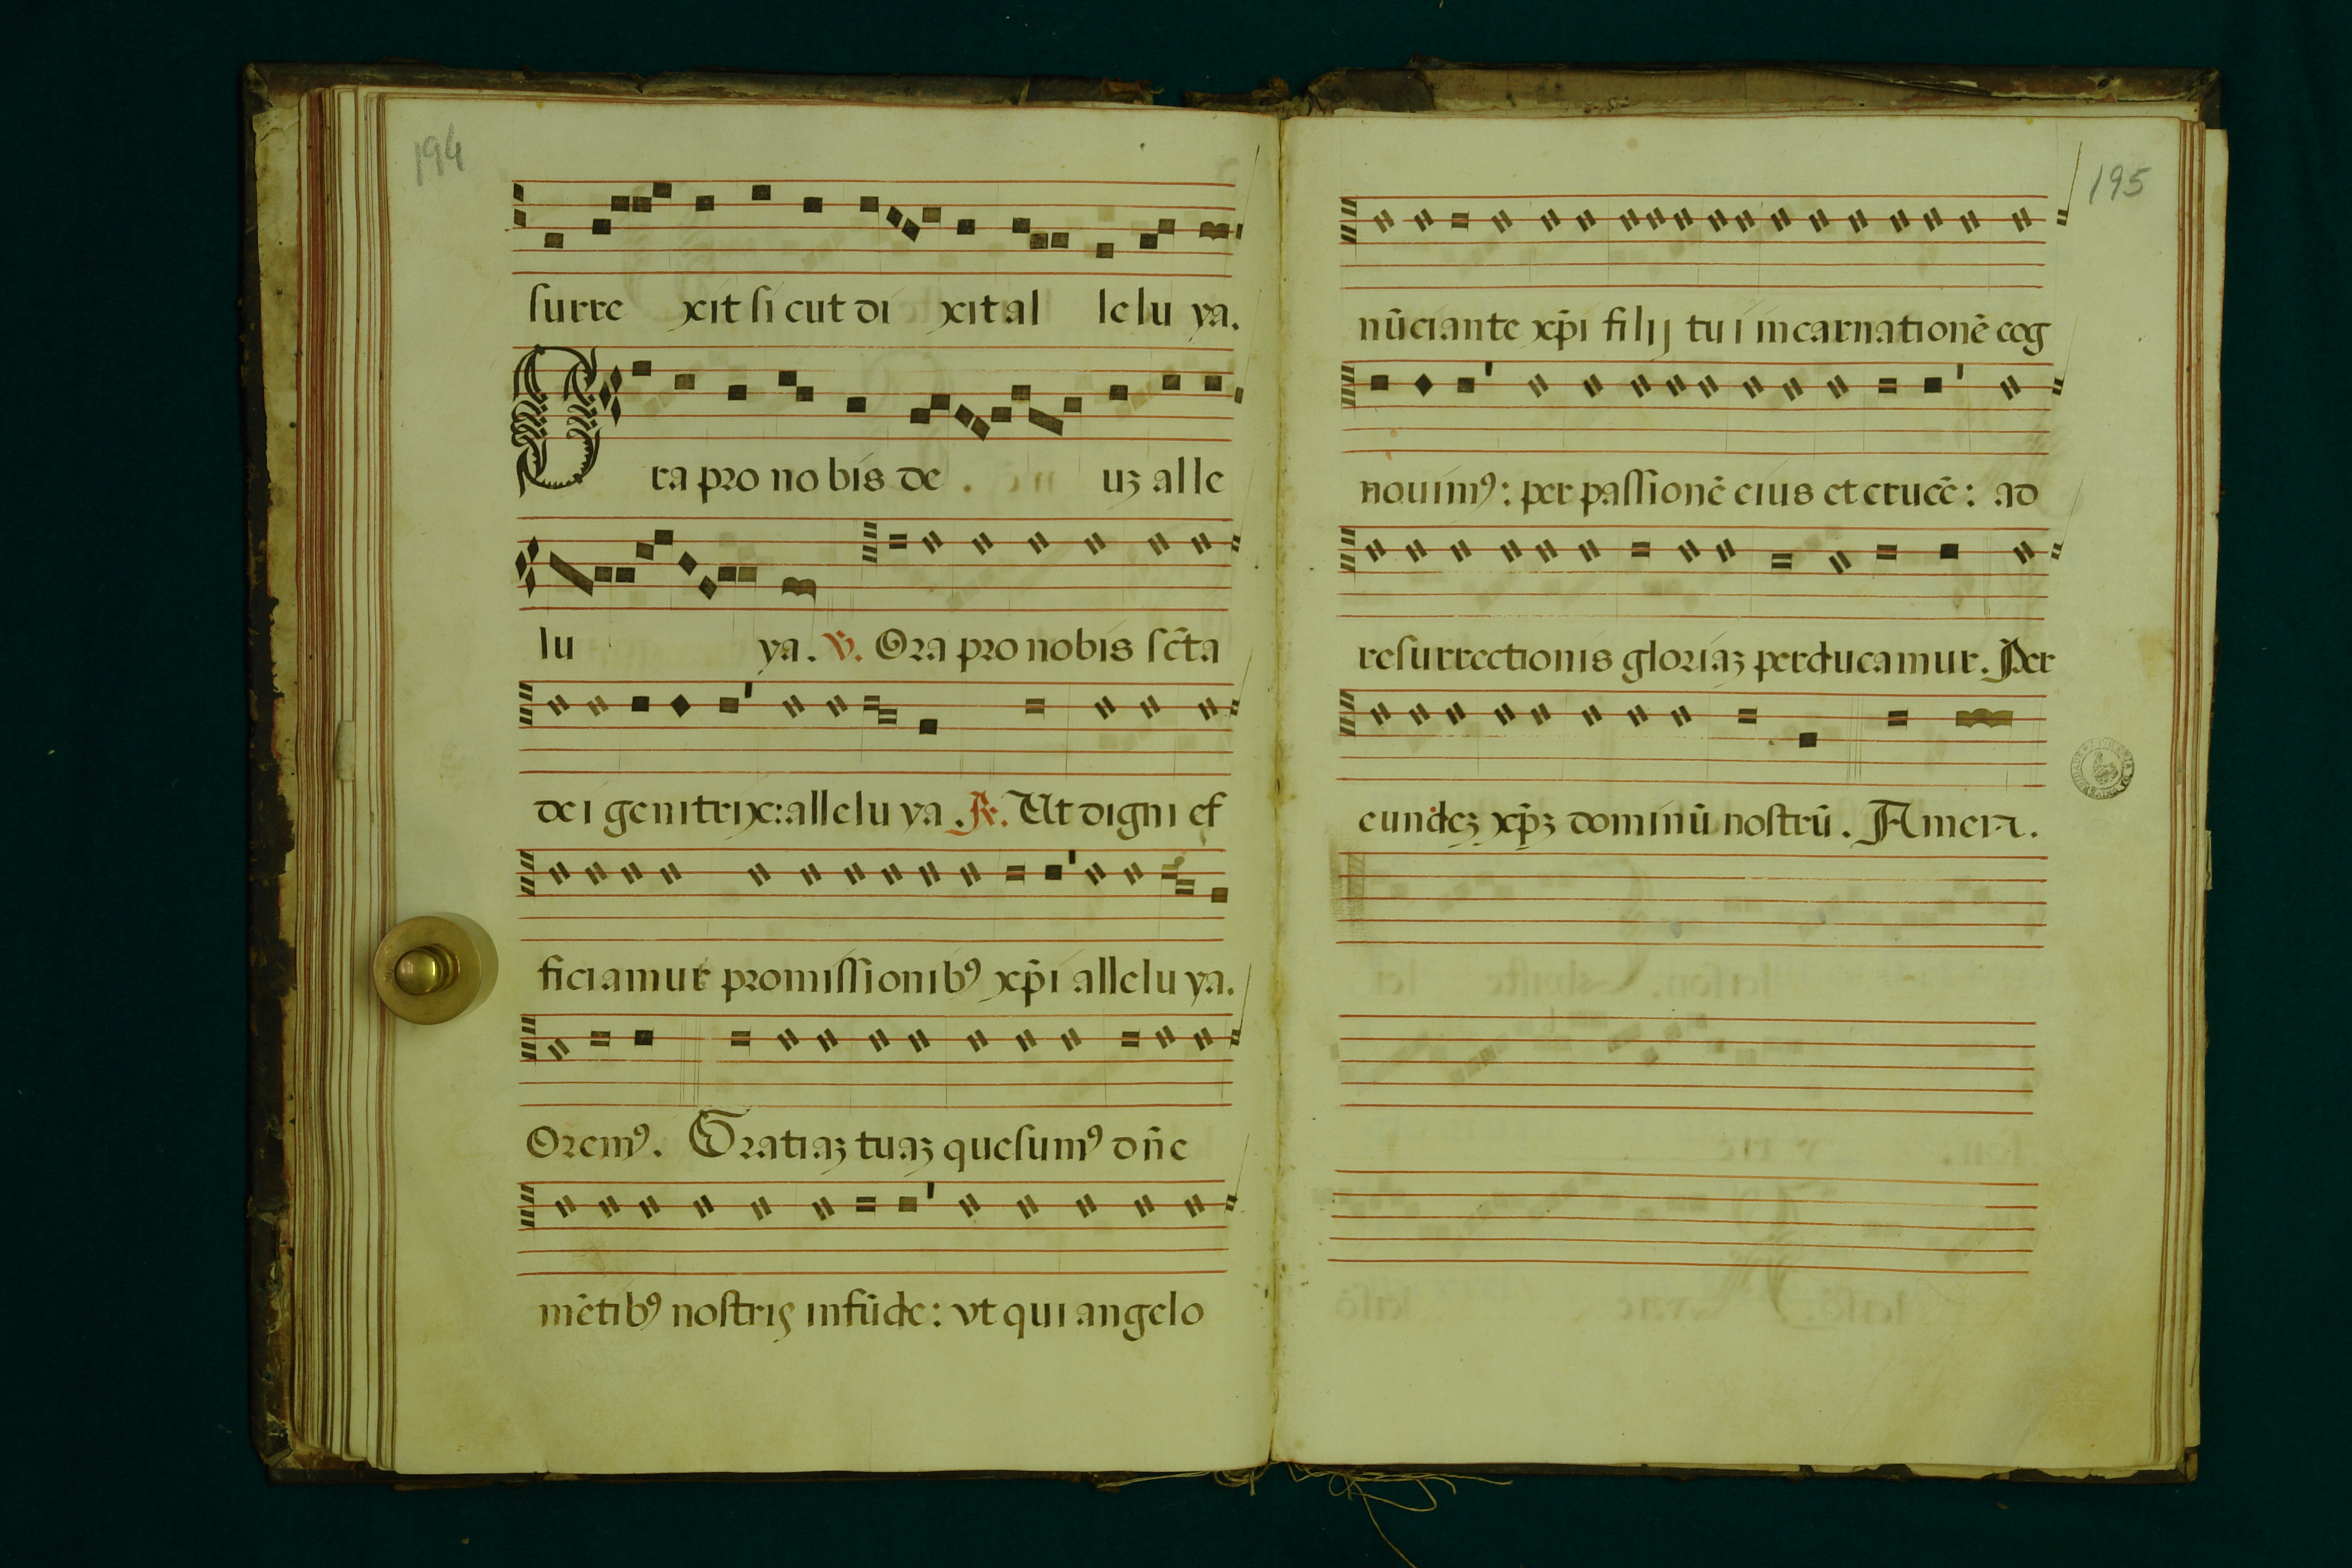 194
surre xit si cut di xit al le lu ya.
Ora pro no bis de uꝫ alle
lu ya. ℣. Ora pro nobis sct̄a
dei genitrix: allelu ya. ℟. Ut digni ef
ficiamur promissionibꝰ xp̄i allelu ya.
Oremꝰ. Gratiaꝫ tuaꝫ quesumꝰ dn̄e
mētibꝰ nostris infūde: vt qui angelo
195
nūciante xp̄i filij tui incarnationē cog
nouimꝰ: per passionē eius et crucē: ad
resurrectionis gloriaꝫ perducamur. Per
eundeꝫ xp̄ꝫ dominū nostrū. Amen.